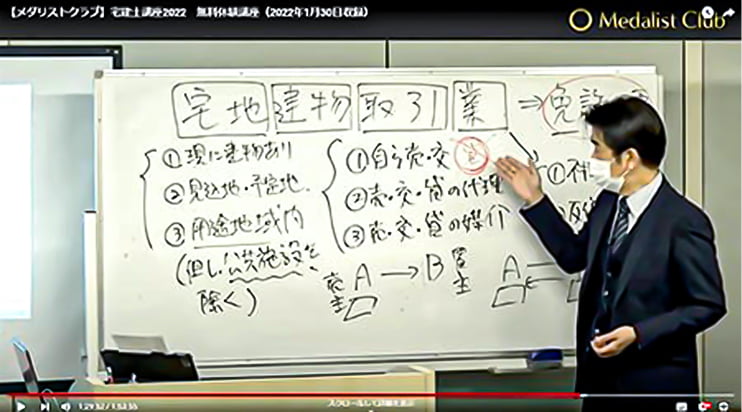 【メダリストクラブ】宅建士講座2022 無料体験講座（2022年1月30日収録）
Medalist Club
宅地 建物 取引 業 ⇒免許
①現に建物あり
②見込地・予定地
③用途地域内
(但し、公共施設を
除く)
①自ら売・交 貸
②売・交・貸の代理
③売・交・貸の媒介
売主 A → B 買主
①不
A
スクロールして詳細を表示